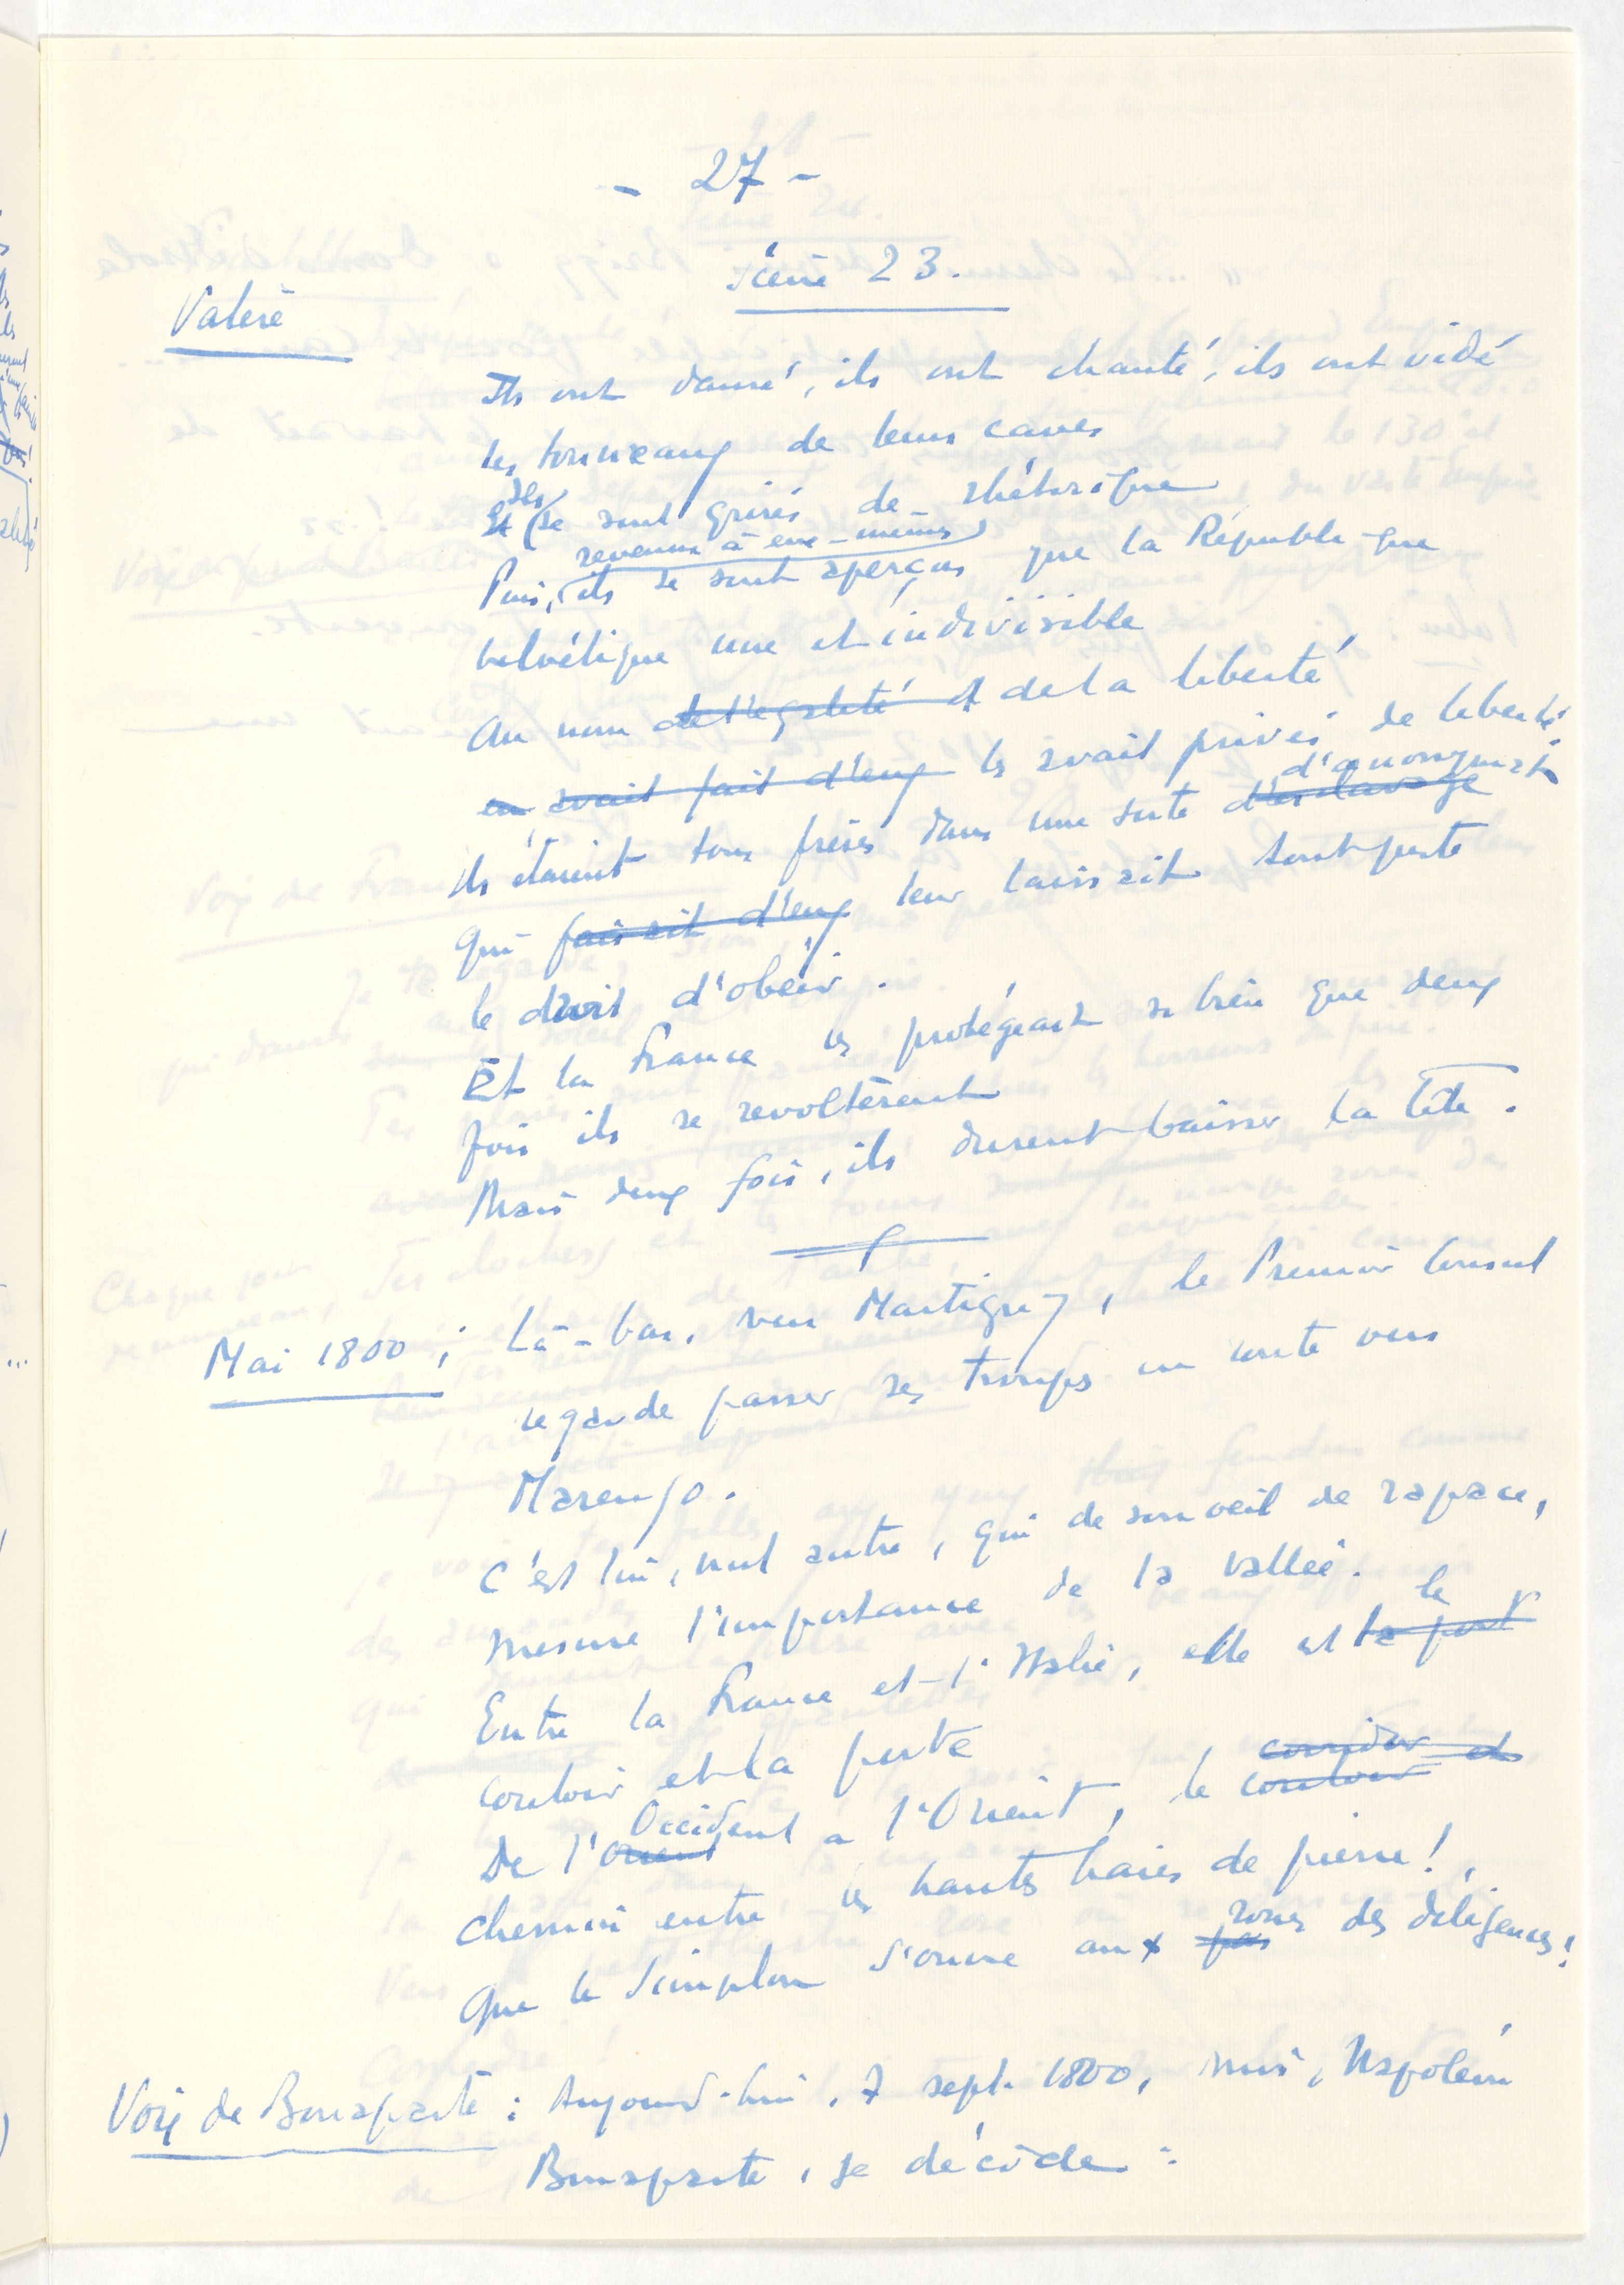 - 27 -
Scène 23.
Valère
Ils ont dansé, ils ont chanté, ils ont vidé
les tonneaux de leurs caves
Et (ils se sont grisés de rhétorique
revenus à eux-mêmes
Puis, ils se sont aperçus que la République
helvétique une et indivisible
Au nom de l'égalité et de la liberté
en avait fait d'eux les avait privés de liberté
d'anonymat
Ils étaient tous frères dans une sorte d'esclavage
Qui faisait d'eux leur laissait tout juste
le droit d'obéir.
Et la France les protégeait si bien que deux
fois ils se revoltèrent
Mais deux fois, ils durent baisser la tête.
Mai 1800 : Là-bas, vers Martigny, le Premier Consul
regarde passer ses troupes en route vers
Marengo.
C'est lui, nul autre, qui de son oeil de rapace,
mesure l'importance de la vallée.
le
Entre la France et l'Italie, elle est la port
couloir et la porte
corridor et
Occident
De l'Orient a l'Orient, le couloir
chemin entre les hautes haies de pierre!
roues
Que le Simplon s'ouvre aux pas des diligences!
Voix de Bonaparte : Aujourd'hui, 7 sept. 1800, moi, Napoléon
Bonaparte, je décide :